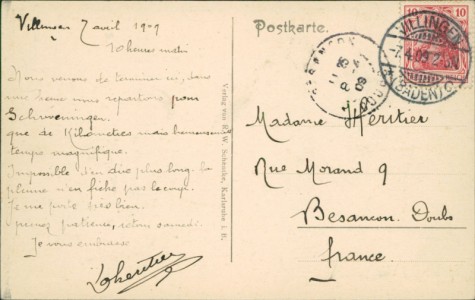 Villingen 7 avril 1909
10 heures matin
Nous venons de terminer ici, dans
une heure nous repartirons pour
Schwenningen.
que de Kilomètres mais heureusement
temps magnifique.
Impossible d'en dire plus long, la
plume n'en fiche pas
Je me porte très bien.
prenez patience, retour samedi.
Je vous embrasse
Lheritier
Verlag von W. Schencke, Karlsruhe i. B.
Postkarte.
BESANCON
DOUBS
10 10
VILLINGEN
7.4.09
(BADEN)
Madame Héritier
Rue Morand 9
Besancon. Doubs
france.